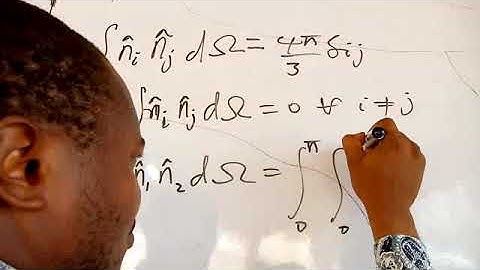 ∫ n̂ᵢ n̂ⱼ dΩ = 4π/3 δij
∫ n̂ᵢ n̂ⱼ dΩ = 0 ∀ i ≠ j
n̂₁ n̂₂ dΩ = ∫₀^π ∫₀